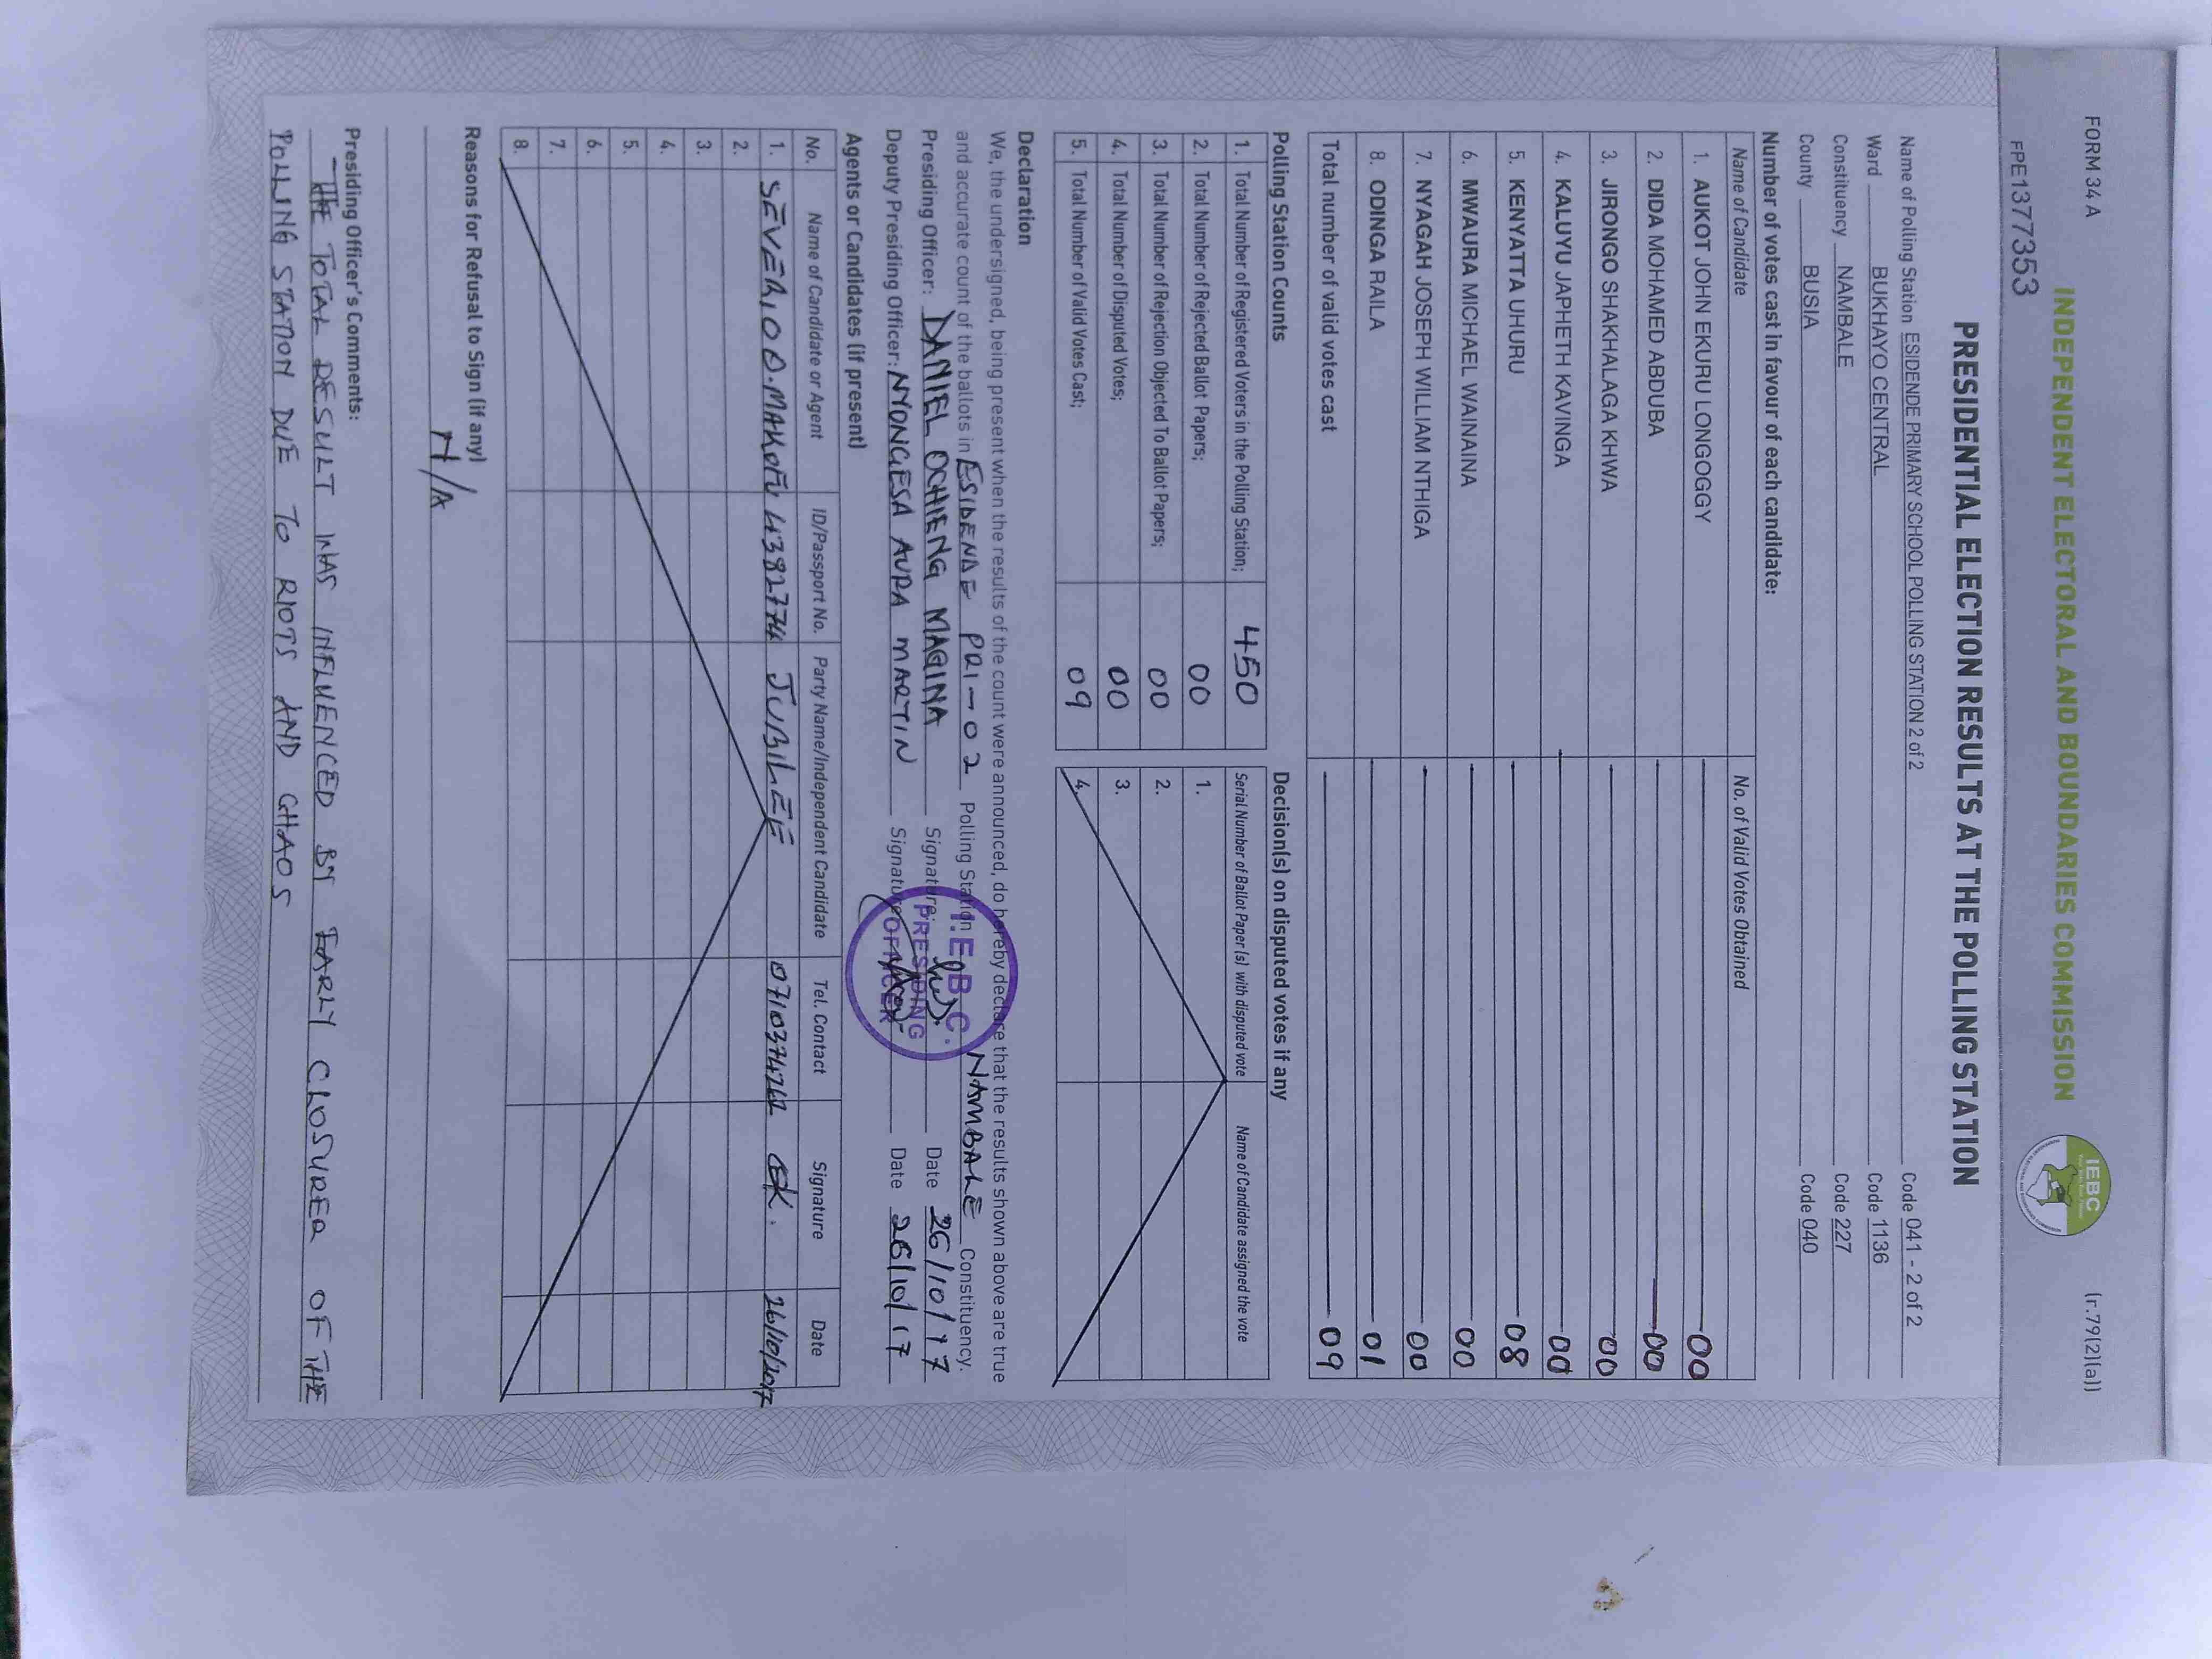 FORM 34 A
(r.79(2)(a))
INDEPENDENT ELECTORAL AND BOUNDARIES COMMISSION
IEBC
FPE1377353
PRESIDENTIAL ELECTION RESULTS AT THE POLLING STATION
Name of Polling Station ESIDENDE PRIMARY SCHOOL POLLING STATION 2 of 2 Code 041 - 2 of 2
Ward BUKHAYO CENTRAL Code 1136
Constituency NAMBALE Code 227
County BUSIA Code 040
Number of votes cast in favour of each candidate:
Name of Candidate No. of Valid Votes Obtained
1. AUKOT JOHN EKURU LONGOGGY 00
2. DIDA MOHAMED ABDUBA 00
3. JIRONGO SHAKHALAGA KHWA 00
4. KALUYU JAPHETH KAVINGA 00
5. KENYATTA UHURU 08
6. MWAURA MICHAEL WAINAINA 00
7. NYAGAH JOSEPH WILLIAM NTHIGA 00
8. ODINGA RAILA 01
Total number of valid votes cast 09
Polling Station Counts
1. Total Number of Registered Voters in the Polling Station; 450
2. Total Number of Rejected Ballot Papers; 00
3. Total Number of Rejection Objected To Ballot Papers; 00
4. Total Number of Disputed Votes; 00
5. Total Number of Valid Votes Cast; 09
Decision(s) on disputed votes if any
Serial Number of Ballot Paper(s) with disputed vote Name of Candidate assigned the vote
1.
2.
3.
4.
Declaration
We, the undersigned, being present when the results of the count were announced, do hereby declare that the results shown above are true
and accurate count of the ballots in ESIDENDE PRI-02 Polling Station NAMBALE Constituency.
Presiding Officer: DANIEL OCHIENG MAGINA Signature: Date 26/10/17
Deputy Presiding Officer: NYONGESA AURA MARTIN Signature Date 26/10/17
I.E.B.C.
PRESIDING
OFFICER
Agents or Candidates (if present)
No. Name of Candidate or Agent ID/Passport No. Party Name/Independent Candidate Tel. Contact Signature Date
1. SEVERIO O. MAKOFU JUBILEE 26/10/2017
2.
3.
4.
5.
6.
7.
8.
Reasons for Refusal to Sign (if any)
N/A
Presiding Officer's Comments:
THE TOTAL RESULT WAS INFLUENCED BY EARLY CLOSURER OF THE
POLLING STATION DUE TO RIOTS AND CHAOS